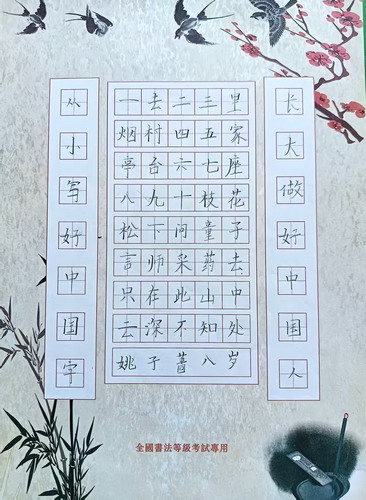 从小写好中国字
一去二三里
烟村四五家
亭台六七座
八九十枝花
松下问童子
言师采药去
只在此山中
去深不知处
姚子菩八岁
长大做好中国人
全國書法等級考試專用